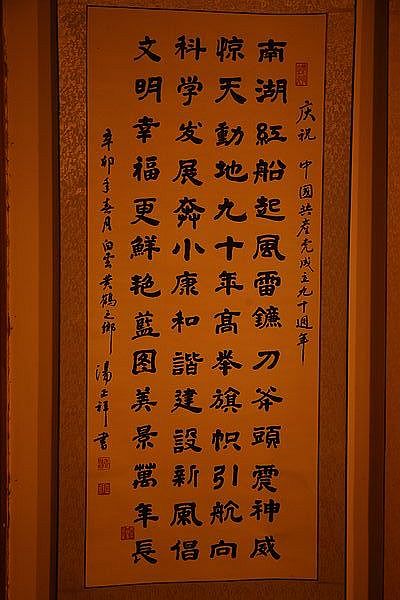 庆祝 中國共產党成立九十週年
南湖紅船起風雷鐮刀斧頭震神威
惊天動地九十年髙举旗帜引航向
科学发展奔小康和諧建設新風倡
文明幸福更鮮艳藍图美景萬年長
辛卯年春月白雲黄鶴之鄉 湯正祥書